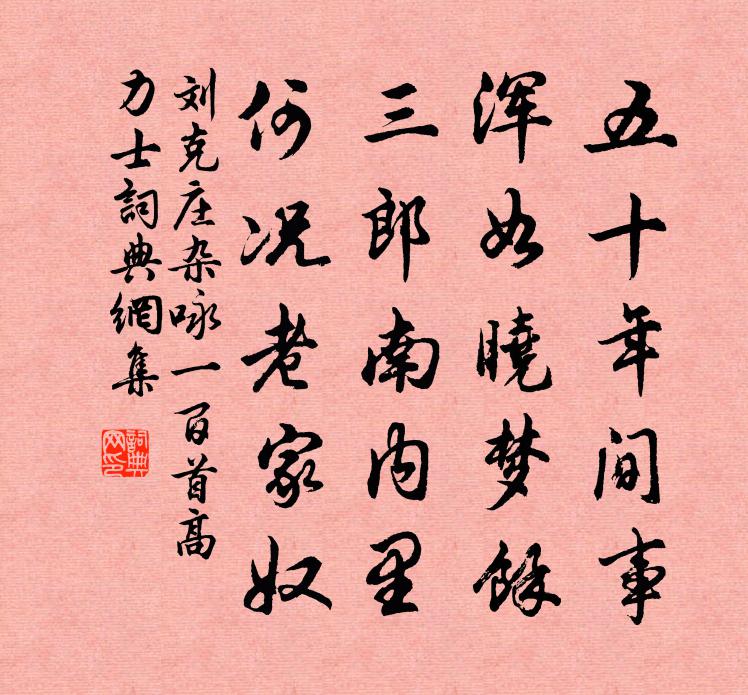 五十年间事
浑如曉梦餘
三郎南内里
何况老家奴
刘克庄杂咏一百首高
力士詞典網集
詞典网印